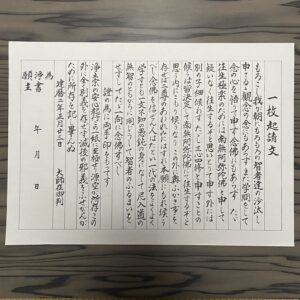 一枚起請文
もろこし我が朝にもろもろの智者達の沙汰し
申さるゝ観念の念にもあらず また学問をして
念の心を悟りて申す念佛にもあらず たゞ
往生極楽のためには南無阿弥陀佛と申して
疑いなく往生するぞと思いとりて申す外には
別の子細候わず たゞし三心四修と申すことの
候は皆決定して南無阿弥陀佛にて往生するぞと
思う内にこもり候うなり この外に奥ふかき事を
存ぜば二尊のあわれみにはずれ本願にもれ候う
べし 念佛を信ぜん人はたとい一代の法をよくよく
学すとも一文不知の愚鈍の身になして尼入道の
無智のともがらに同じうして智者のふるまいを
せずしてたゞ一向に念佛すべし
證の為に両手印をもってす
浄土宗の安心起行この一紙に至極せり 源空が所存この
外に全く別義を存ぜず滅後の邪義をふせがんが
ために所存を記し畢んぬ
建暦二年正月二十三日 大師在御判
為
浄書 年 月 日
願主